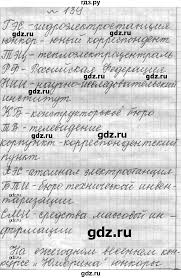 гдз.ру
№ 139
ГЭС - гидроэлектростанция
юнкор - юный корреспондент
ТЭЦ - теплоэлектроцентраль
РФ - Российская Федерация
НИИ - научно-исследовательский
институт
КБ - конструкторское бюро
ТВ - телевидение
корпункт - корреспондентский
пункт
АЭС - атомная электростанция
БТИ - бюро технической инвен-
таризации
СМИ - средства массовой ин-
формации
На ежегодном весеннем кон-
курсе юнкоры